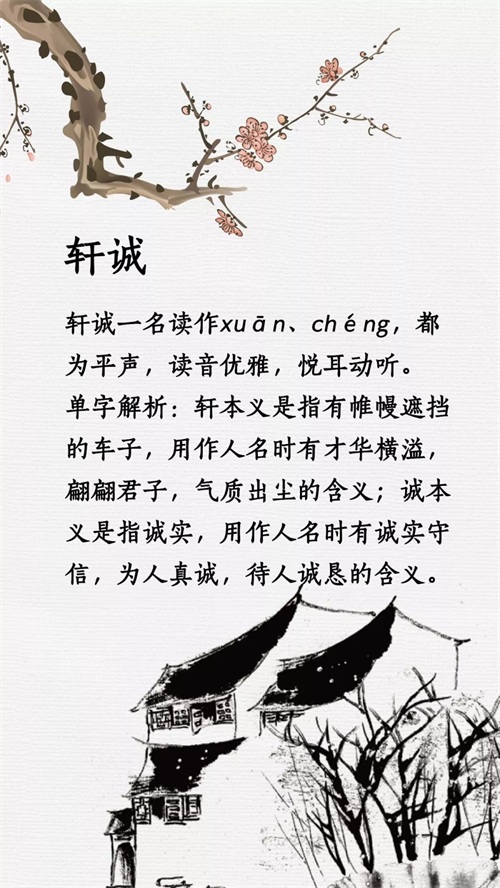 轩诚
轩诚一名读作xuān、chéng，都
为平声，读音优雅，悦耳动听。
单字解析：轩本义是指有帷幔遮挡
的车子，用作人名时有才华横溢，
翩翩君子，气质出尘的含义；诚本
义是指诚实，用作人名时有诚实守
信，为人真诚，待人诚恳的含义。